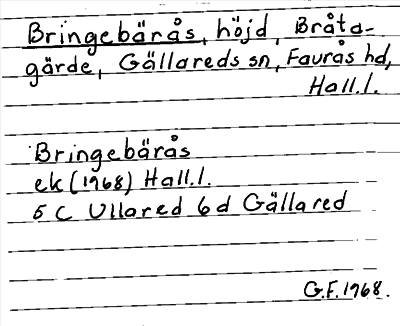 Bringebärås, höjd, Bråta-
gärde, Gällareds sn, Faurås hd,
Hall.l.
Bringebärås
ek (1968) Hall.l.
5 C Ullared 6 d Gällared
G.F. 1968.